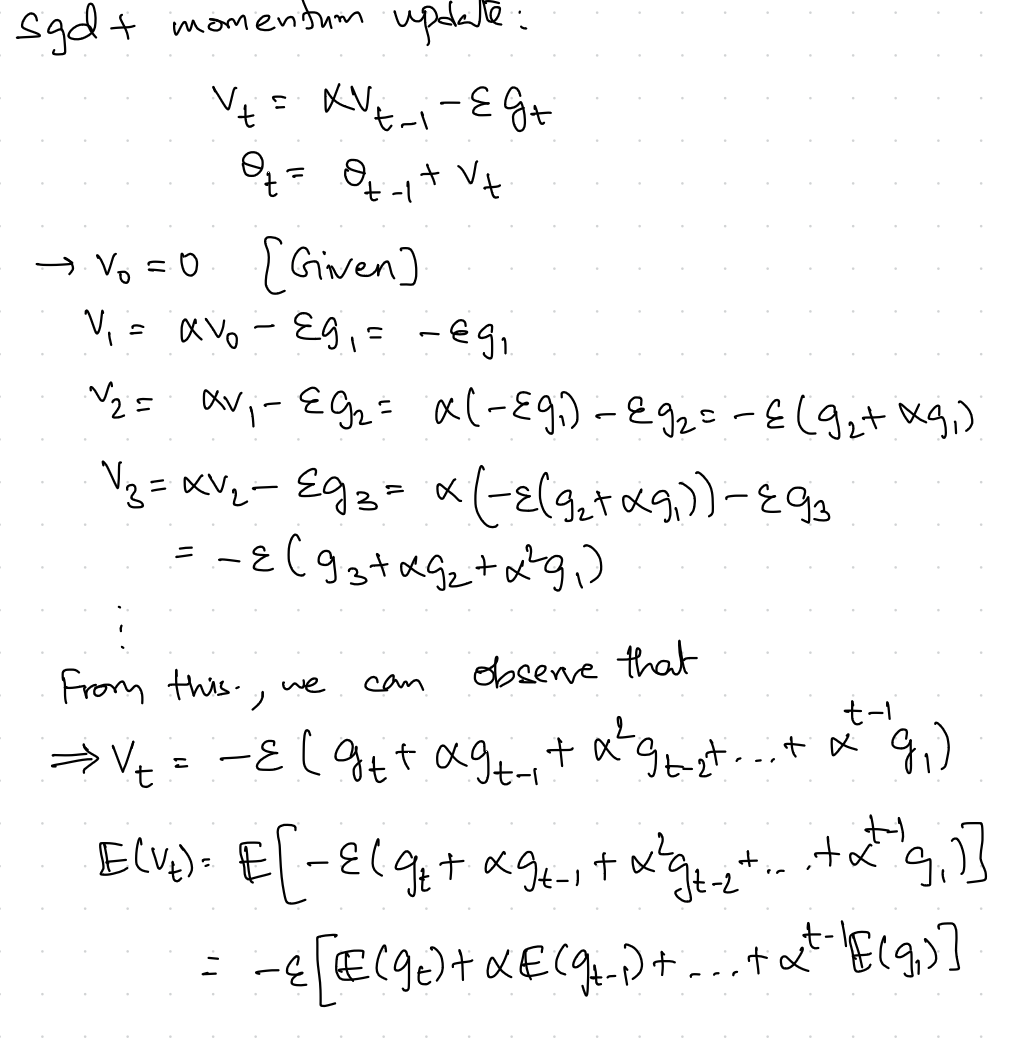 sgd + momentum update:
V_t = αV_{t-1} - εg_t
θ_t = θ_{t-1} + V_t
→ V_0 = 0 [Given]
V_1 = αV_0 - εg_1 = -εg_1
V_2 = αV_1 - εg_2 = α(-εg_1) - εg_2 = -ε(g_2 + αg_1)
V_3 = αV_2 - εg_3 = α(-ε(g_2 + αg_1)) - εg_3
= -ε(g_3 + αg_2 + α^2g_1)
⋮
From this, we can observe that
⇒ V_t = -ε(g_t + αg_{t-1} + α^2g_{t-2} + ... + α^{t-1}g_1)
𝔼(V_t) = 𝔼[-ε(g_t + αg_{t-1} + α^2g_{t-2} + ... + α^{t-1}g_1)]
= -ε[𝔼(g_t) + α𝔼(g_{t-1}) + ... + α^{t-1}𝔼(g_1)]